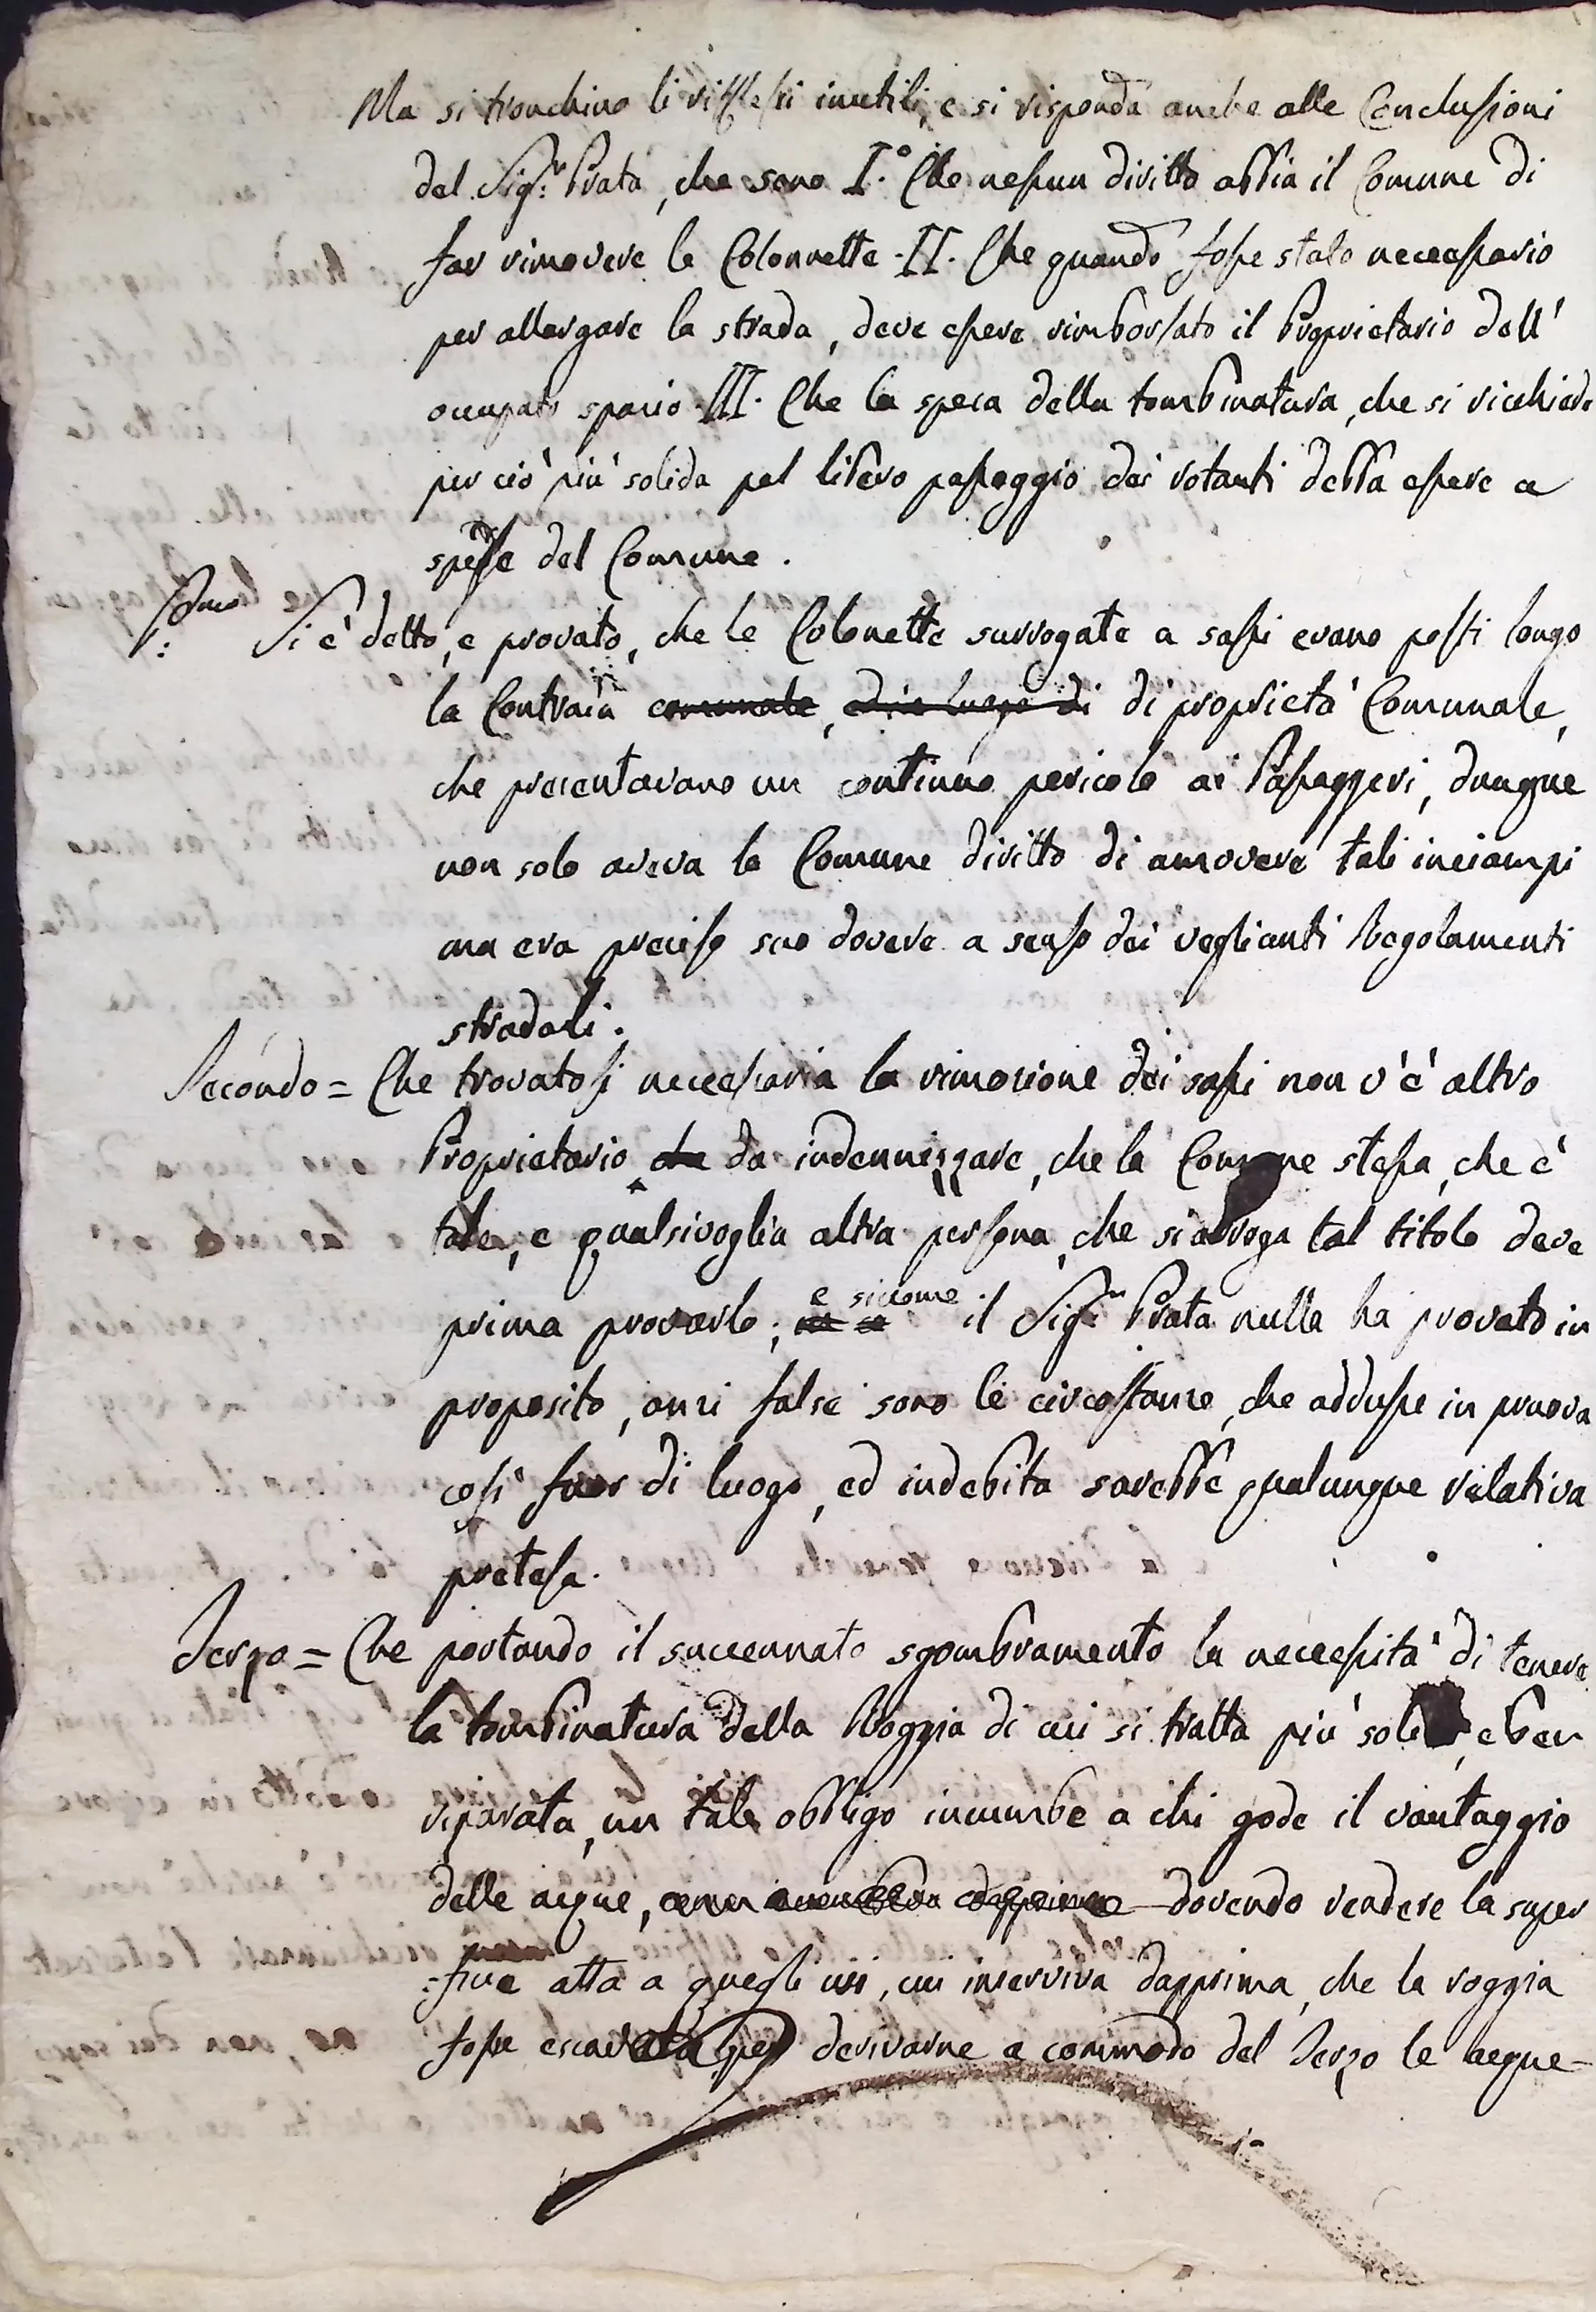 Ma si tronchino li riflessi inutili, e si risponda anche alle Conclusioni
del Sig.r Prata, che sono I.° Che nessun diritto abbia il Comune di
far rimovere le Colonnette. II. Che quando fosse stato necessario
per allargare la strada, deve essere rimborsato il Proprietario dell'
occupato spazio. III. Che la spesa della tombinatura, che si richiede
per ciò più solida pel libero passaggio dei rotanti debba essere a
spese del Comune.
P.mo Si è detto, e provato, che le Colonette surrogate a sassi erano posti longo
la Contrada comunale, ed in luogo di di proprietà Comunale,
che presentavano un continuo pericolo ai Passaggeri, dunque
non solo aveva la Comune diritto di amovere tali inciampi
ma era preciso suo dovere a senso dei veglianti Regolamenti
stradali.
Secondo = Che trovatosi necessaria la rimozione dei sassi non v'è altro
Proprietario che da indennizzare, che la Comune stessa, che è
tale, e qualsivoglia altra persona, che si arroga tal titolo deve
prima provarlo; e siccome il Sig.r Prata nulla ha provato in
proposito, anzi false sono le circostanze, che addusse in pruova
così fuor di luogo, ed indebita sarebbe qualunque relativa
pretesa.
Terzo = Che portando il succennato sgombramento la necessità di tenere
la tombinatura della Roggia di cui si tratta più solida, e ben
riparata, un tale obbligo incumbe a chi gode il vantaggio
delle acque, dovendo rendere la super
:ficie atta a quegli usi, cui inserviva dapprima, che la roggia
fosse escavata per derivarne a commodo del Terzo le acque=